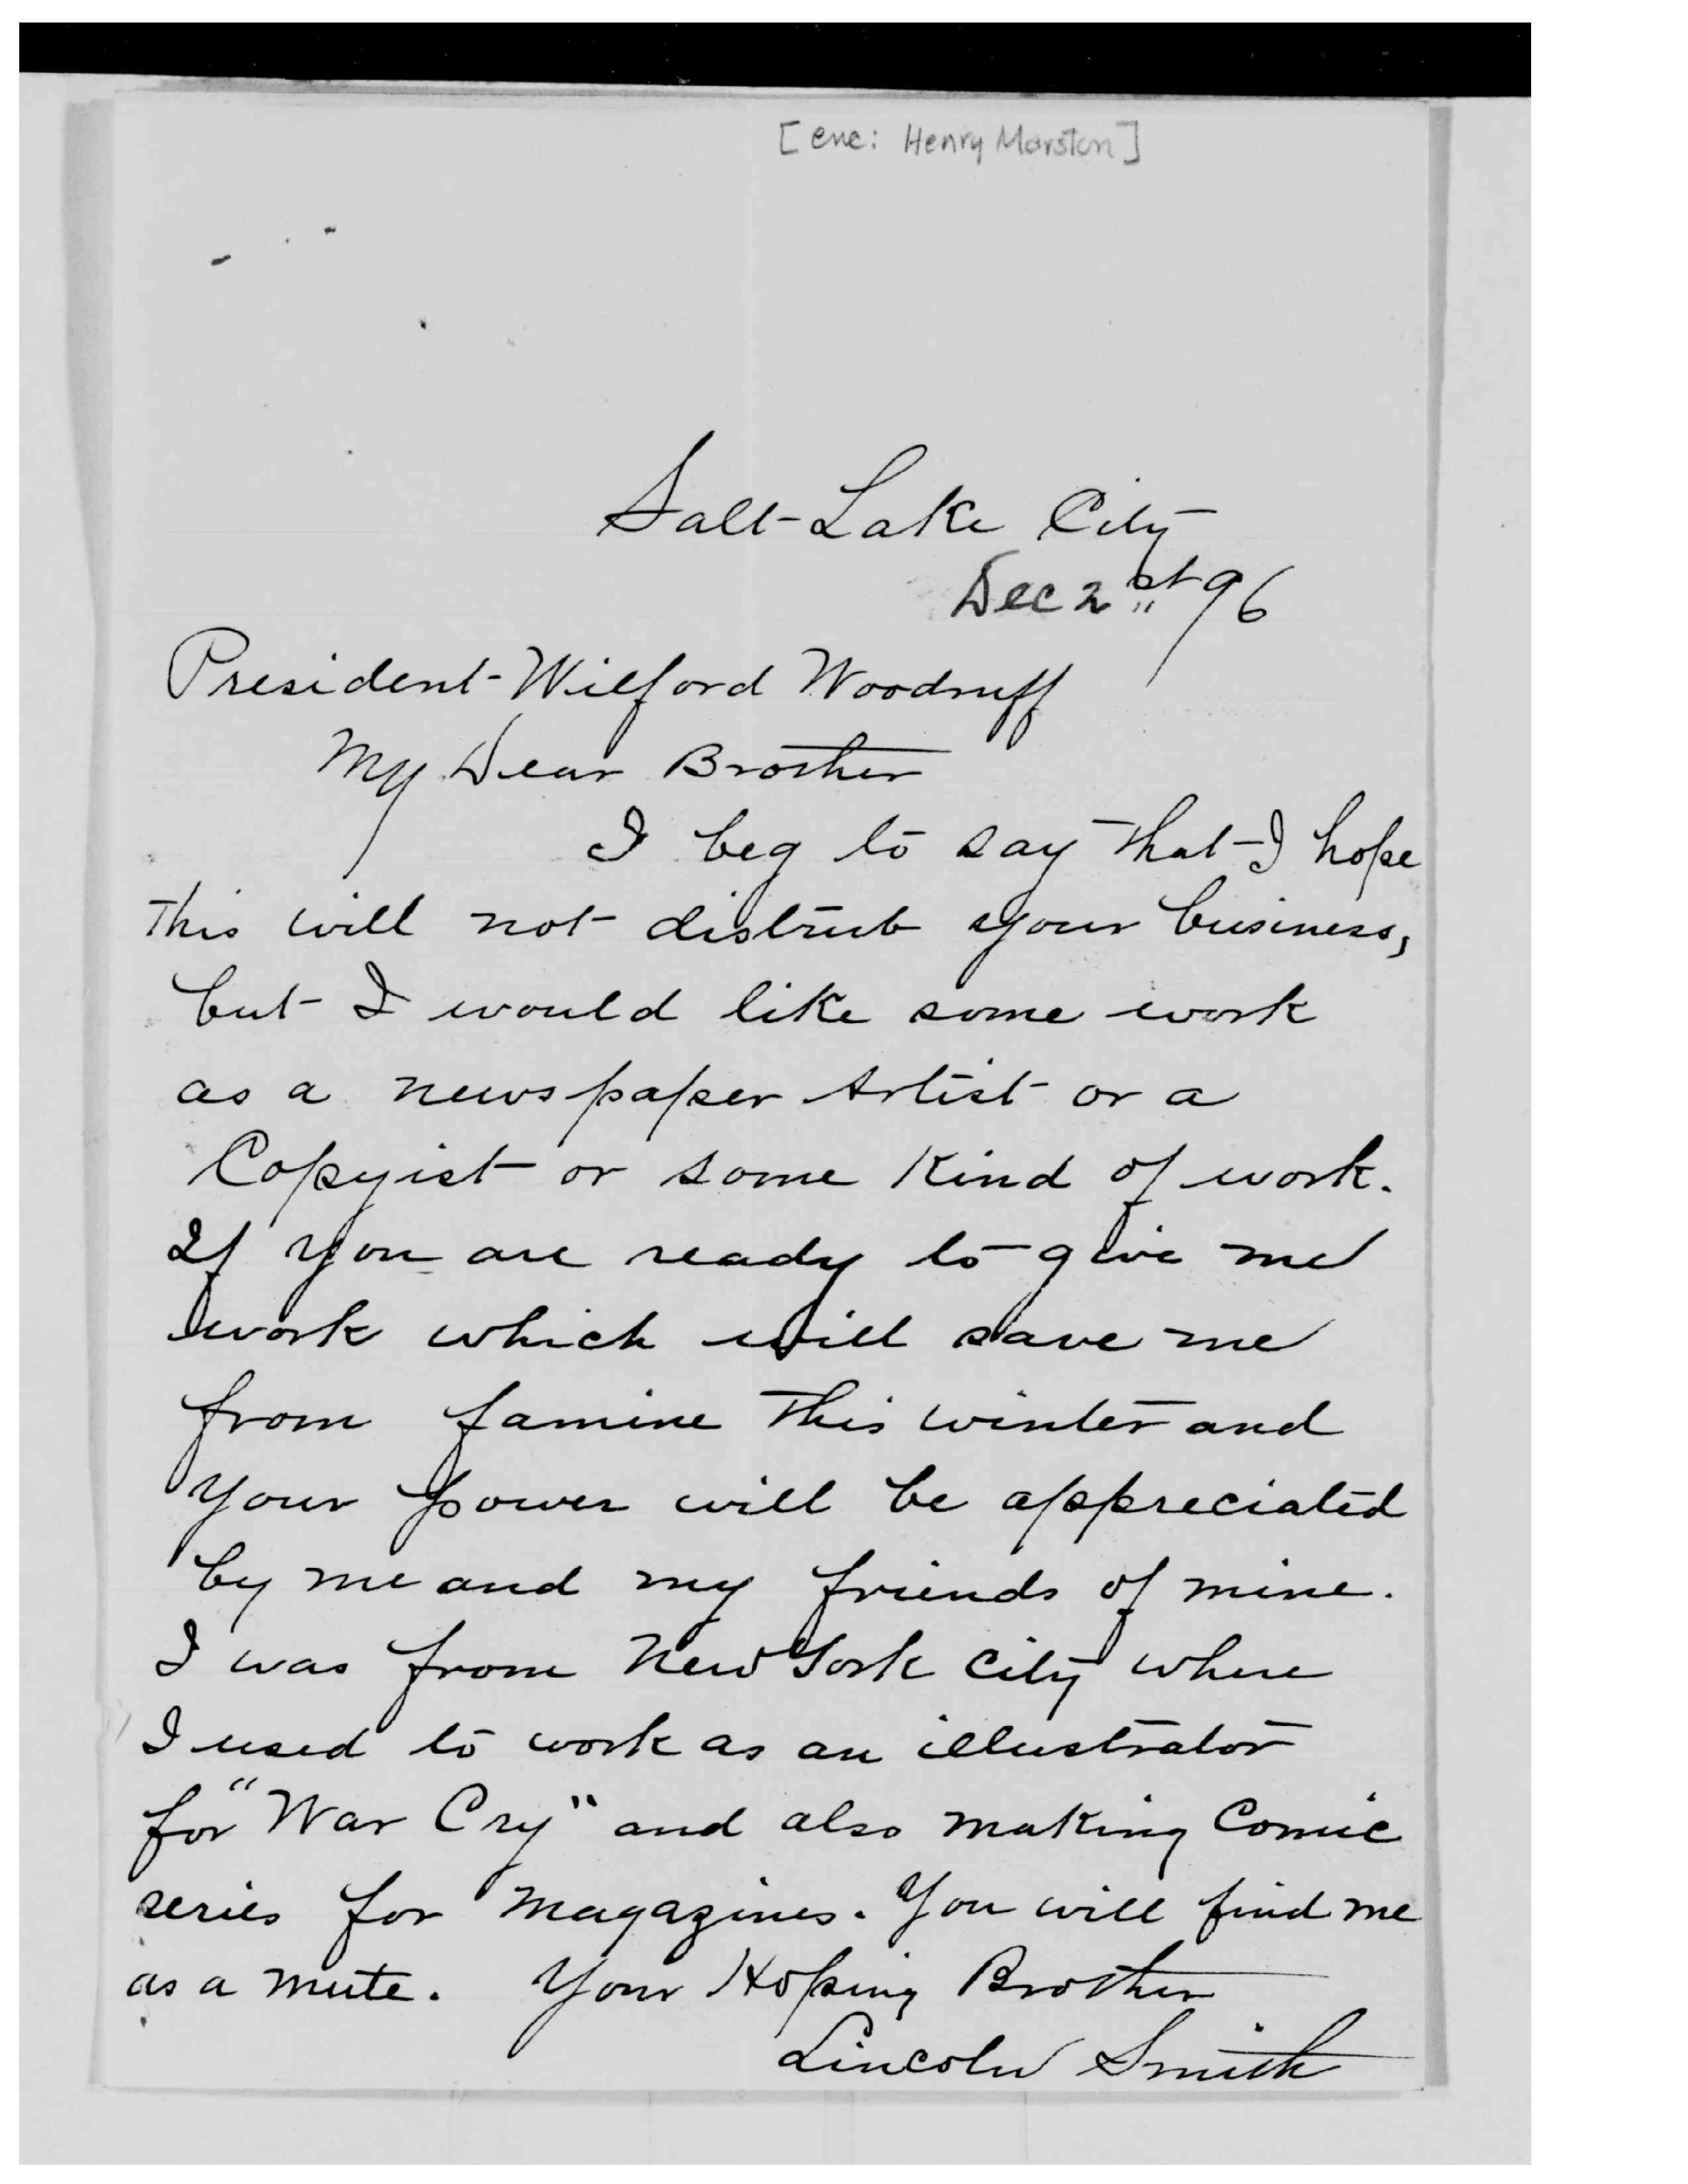 [enc: Henry Marston]
Salt Lake City
Dec 2st 96
President Wilford Woodruff
My Dear Brother
I beg to say that I hope
this will not distrub your business,
but I would like some work
as a newspaper Artist or a
Copyist or some kind of work.
If you are ready to give me
work which will save me
from famine this winter and
your power will be appreciated
by me and my friends of mine.
I was from New York City where
I used to work as an illustrator
for "War Cry" and also making Comic
series for magazines. You will find me
as a mute. Your Hoping Brother
Lincoln Smith